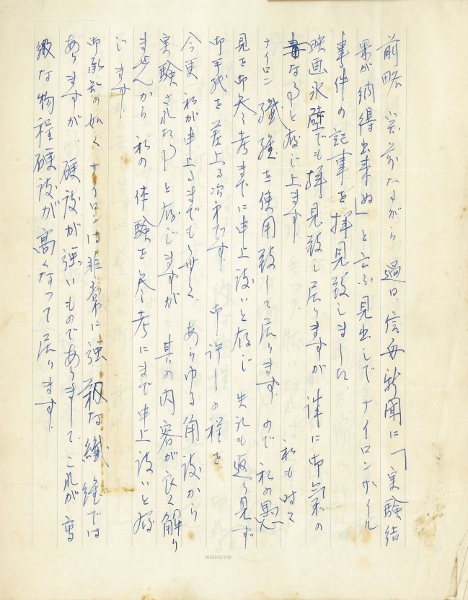 前略 突前ながら過日信毎新聞に「実験結
果が納得出来ぬ」と云ふ見出しでナイロンザイル
事件の記事を拝見致しました
映画氷壁でも拝見致し居りますが 誠に御気の
毒なことと存じ上ます 私も時々
ナイロン繊維を使用致して居ります ので私の愚
見を御参考までに申上度いと存じ 失礼も返り見ず
御手紙を差上る次第です 御許しの程を
今更 私が申上るまでも無く あらゆる角度から
実験されたことと存じますが 其の内容が良く解り
ませんから 私の体験を参考にまで申上度いと存
じます
御承知の如く ナイロンは非常に強靱な繊維では
ありますが 硬度が強いものでありまして これが高
級な物程硬度が高くなって居ります
KOKUYO